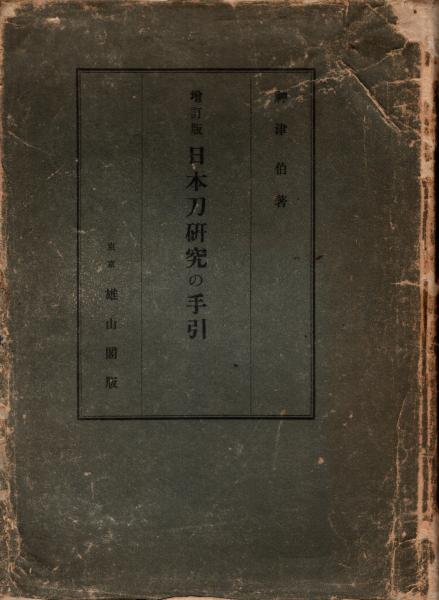 神津伯著
増訂版 日本刀研究の手引
東京 雄山閣版